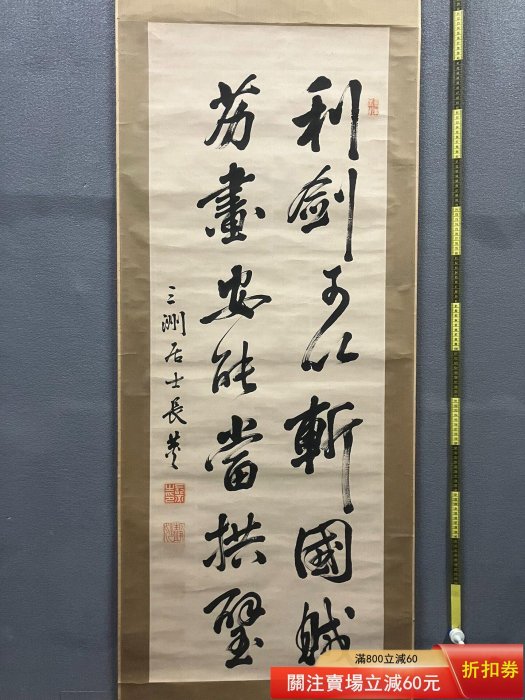 利劍可以斬國賊
芳畫安能當拱璧
三洲居士長炗
滿800立減60
關注賣場立減60元
折扣券